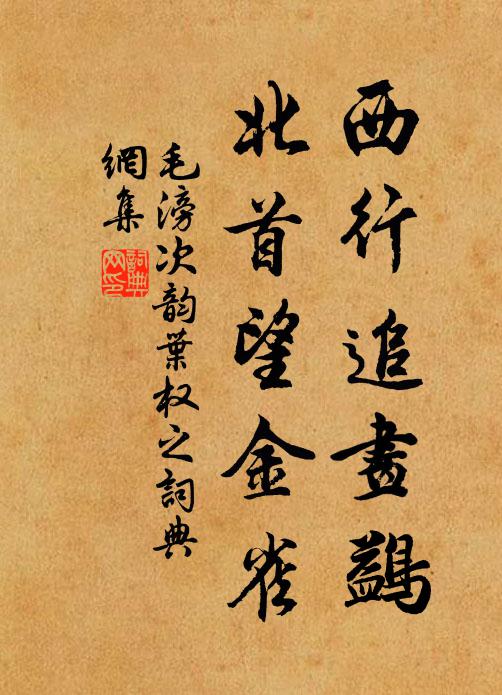 西行追畫鷁
北首望金雀
毛滂次韵葉权之詞典
網集
詞典
网印